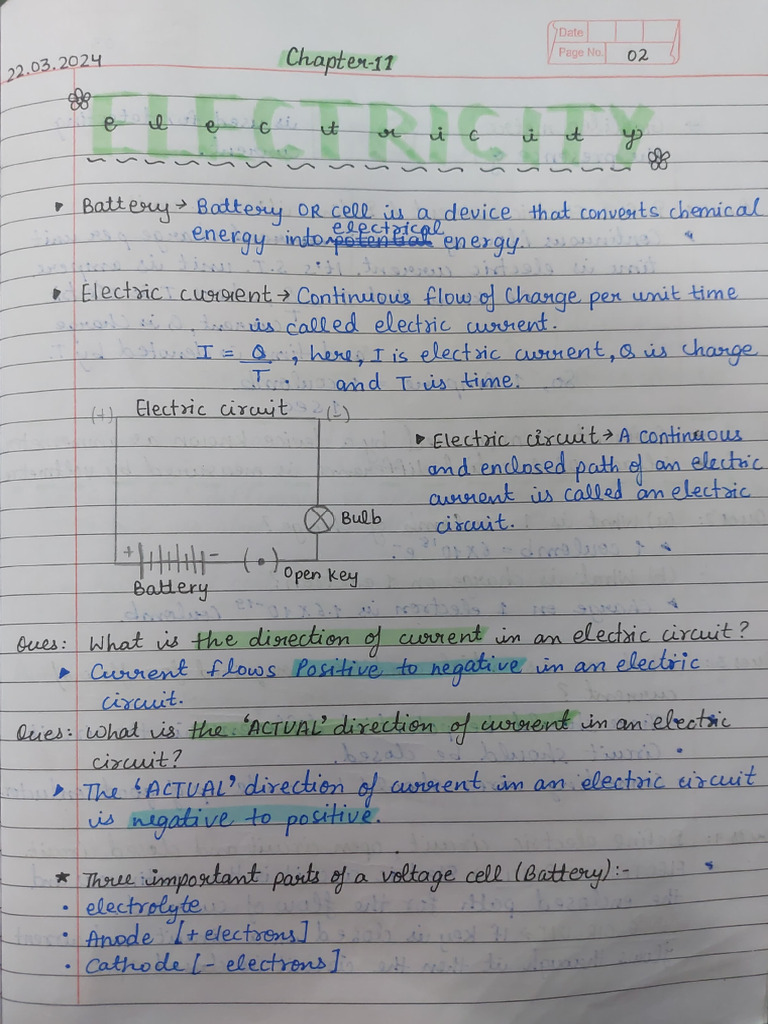 Date
Page No. 02
22.03.2024
Chapter-11
ELECTRICITY
electricity
▸ Battery → Battery OR cell is a device that converts chemical
electrical
energy into potential energy.
▸ Electric current → Continuous flow of Charge per unit time
is called electric current.
I = Q/T, here, I is electric current, Q is charge
and T is time.
(+) Electric circuit (-)
▸ Electric circuit → A continuous
and enclosed path of an electric
current is called an electric
circuit.
Bulb
+ - (•) Open key
Battery
Ques: What is the direction of current in an electric circuit?
▸ Current flows Positive to negative in an electric
circuit.
Ques: What is the 'ACTUAL' direction of current in an electric
circuit?
▸ The 'ACTUAL' direction of current in an electric circuit
is negative to positive.
★ Three important parts of a voltage cell (Battery):-
• electrolyte
• Anode [+ electrons]
• Cathode [- electrons]